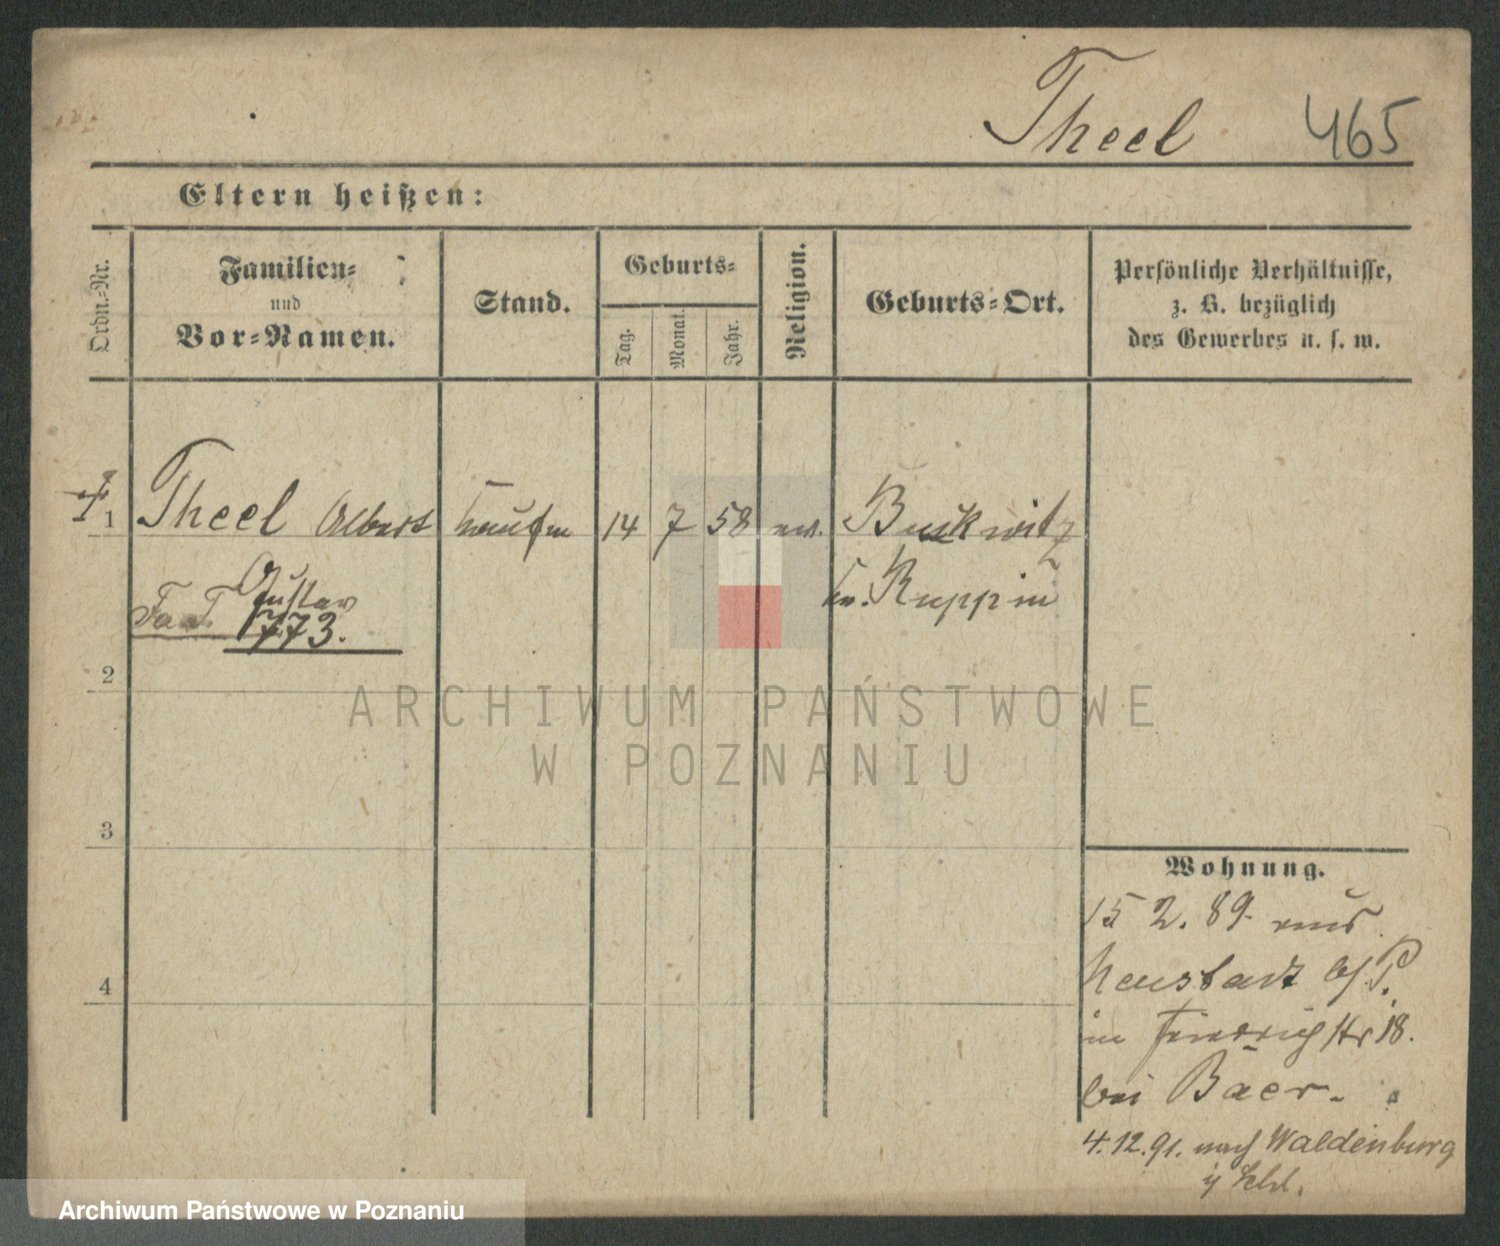 Theel 465
Eltern heißen:
Ordn.-Nr.
Familien-
und
Vor-Namen.
Stand.
Geburts-
Tag.
Monat.
Jahr.
Religion.
Geburts-Ort.
Persönliche Verhältnisse,
z. B. bezüglich
des Gewerbes u. s. w.
1 Theel Albert Kaufm 14 7 58 ev. Buskwitz
Gustav Kr. Ruppin
773.
2
3
4
Wohnung.
15 2. 89. aus
Neustadt b/P.
in Friedrichstr 18.
bei Baer.
4.12.91. nach Waldenburg
i/ Schl.
ARCHIWUM PAŃSTWOWE
W POZNANIU
Archiwum Państwowe w Poznaniu